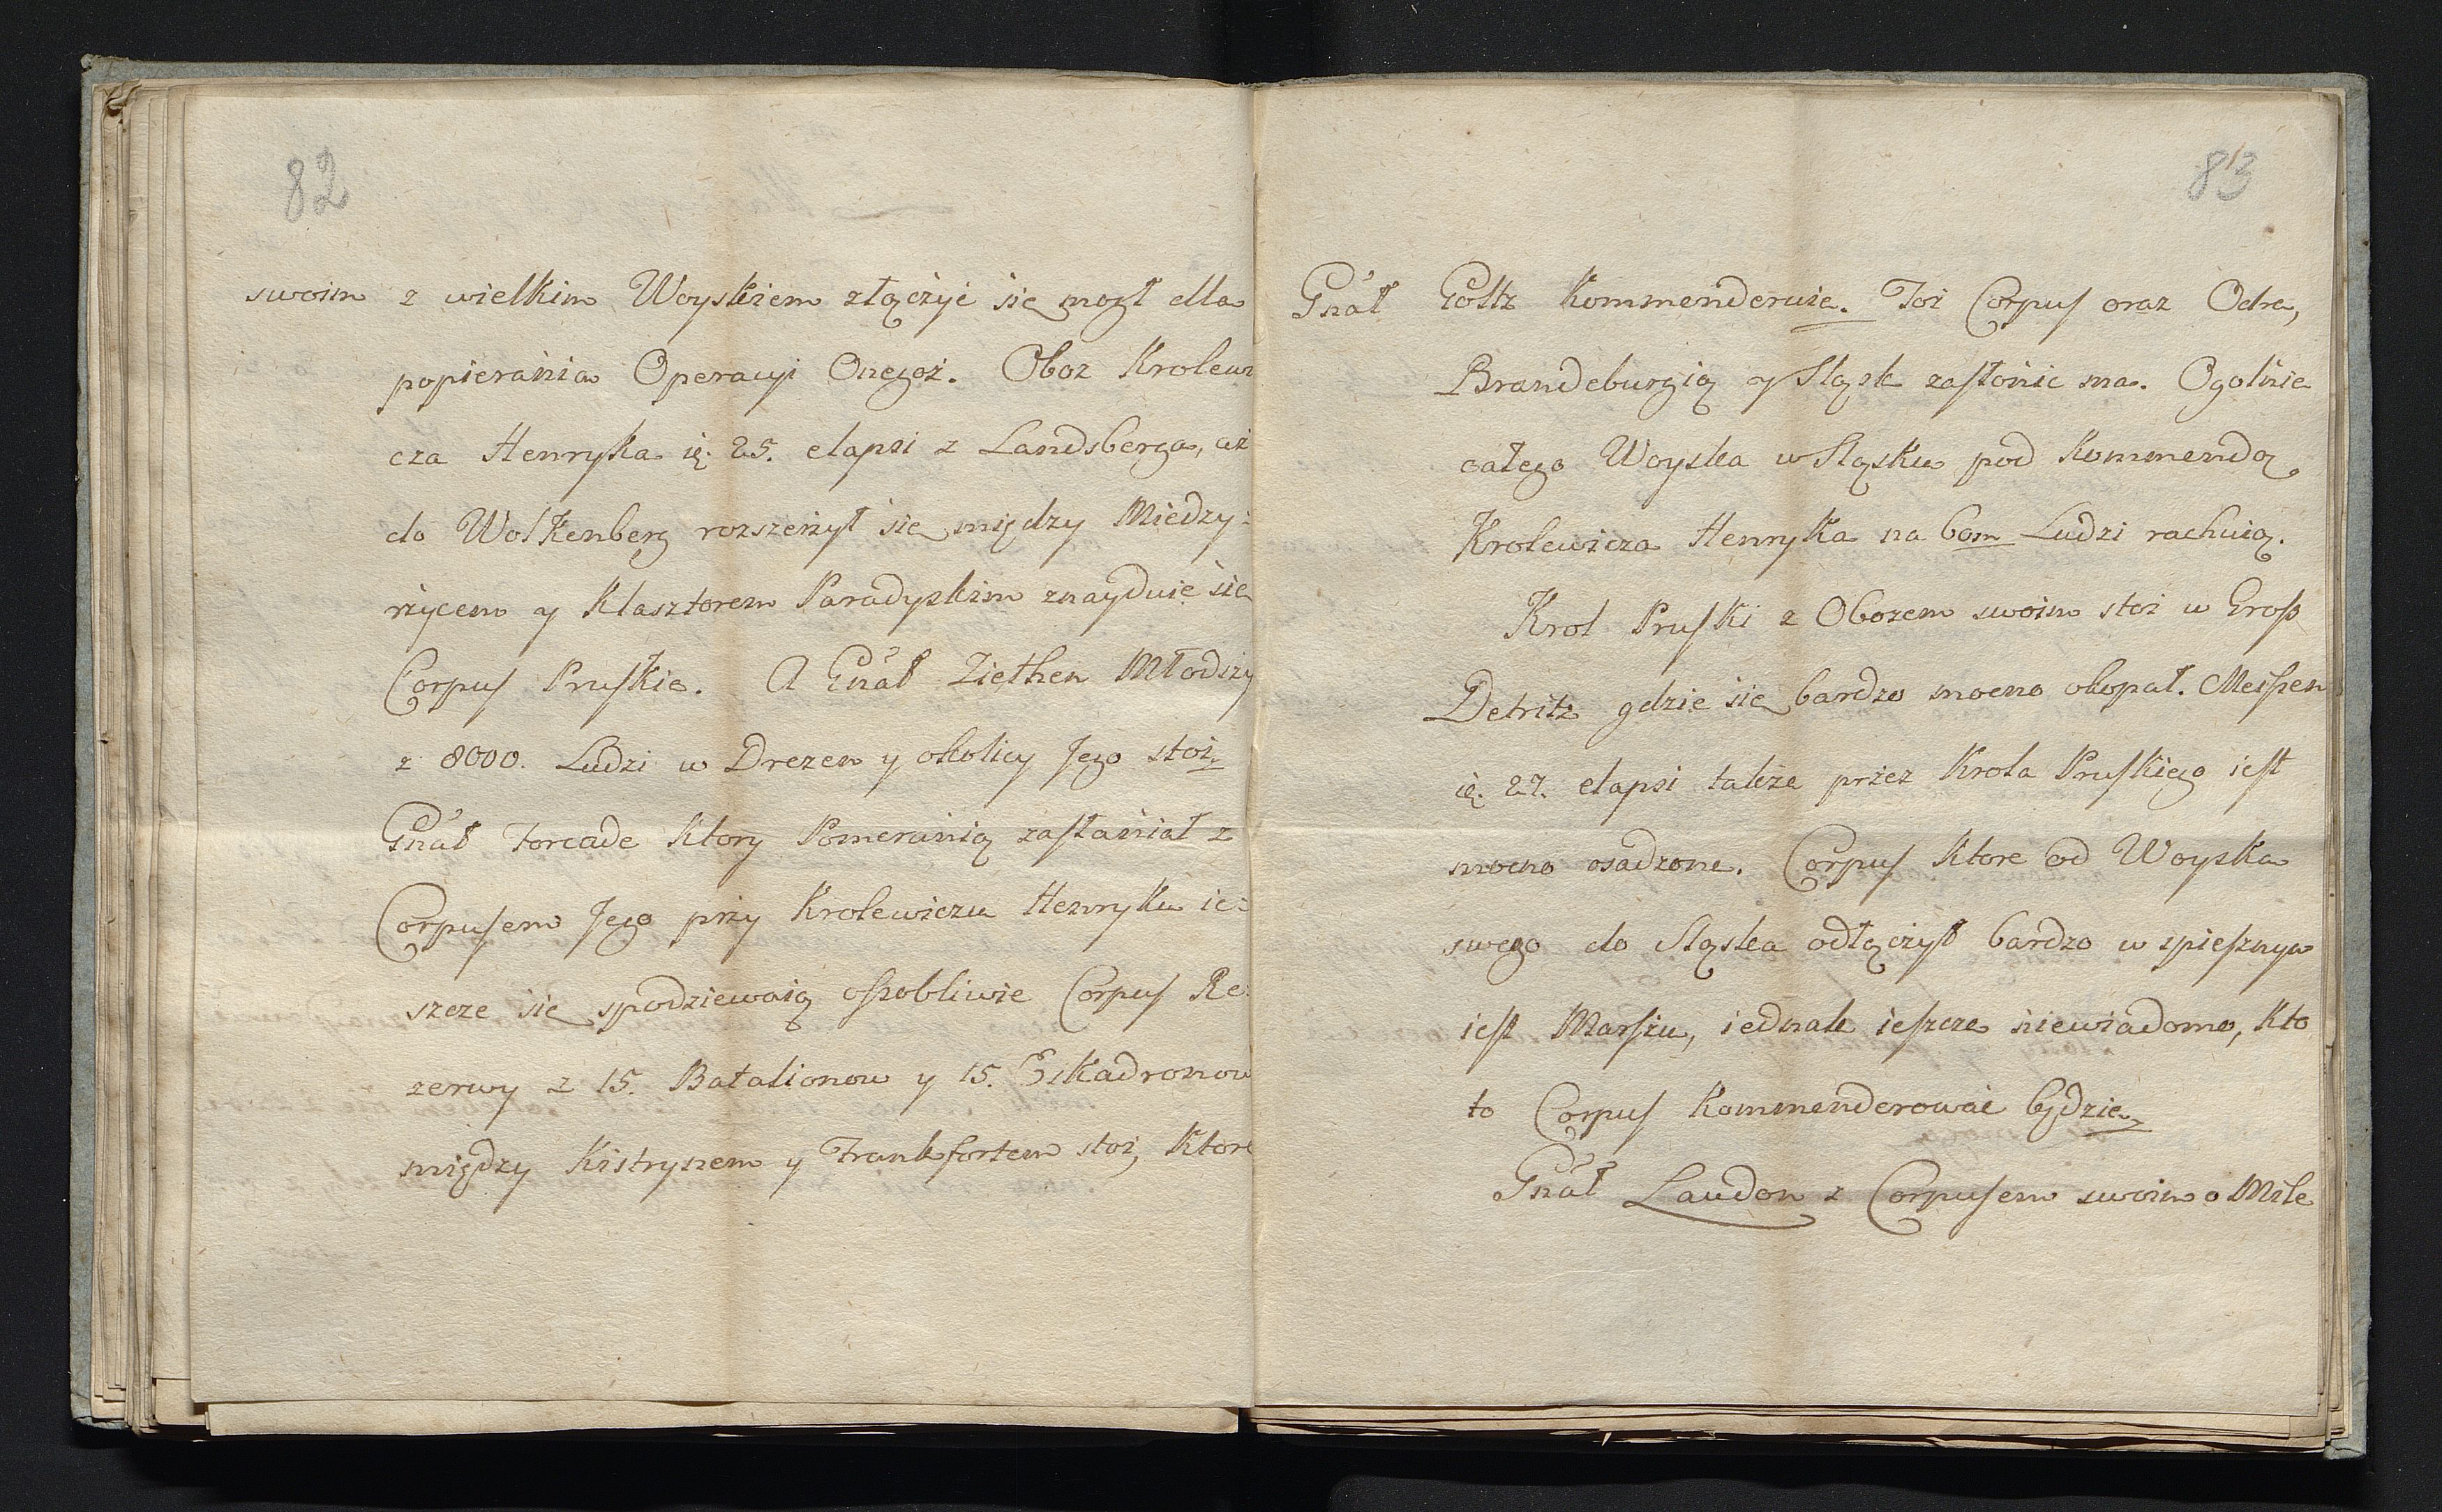 82
swoim z wielkim Woyskiem złączyć się mogł dla
popierańia Operacyi Onegoż. Oboz Krolewi
cza Henryka ię. 25. elapsi z Landsberga, aż
do Wolkenberg rozszeżył się między Miedzy:
rzycem y Klasztorem Paradyskim znayduie się
Corpus Pruskie. A Gnał Ziethen Młodszy
z 8000. Ludzi w Drezen y okolicy Jego stoi
Gnał Forcade Ktory Pomeranią zasłańiał z
Corpusem Jego przy Krolewiczu Henryku ie:
szcze się spodziewaią osobliwie Corpus Re:
zerwy z 15. Batalionow y 15. Eskadronow
między Kistrynem y Frankfortem stoi, Ktore
83
Gnał Goltz Kommenderuie. Toż Corpus oraz Odrą,
Brandeburgią y Sląsk zasłońić ma. Ogolnie
całego Woyska w Sląsku pod Kommendą
Krolewicza Henryka na 60m Ludzi rachuią.
Krol Pruski z Obozem swoim stoi w Groß
Detritz gdzie się bardzo mocno okopał. Meissen
ię. 27. elapsi także przez Krola Pruskiego iest
mocno osadzone. Corpus Ktore od Woyska
swego do Sląska odłączył bardzo w spiesznym
iest Marszu, iednak ieszcze niewiadomo, Kto
to Corpus Kommenderować będzie
Gnał Laudon z Corpusem swoim o Mile